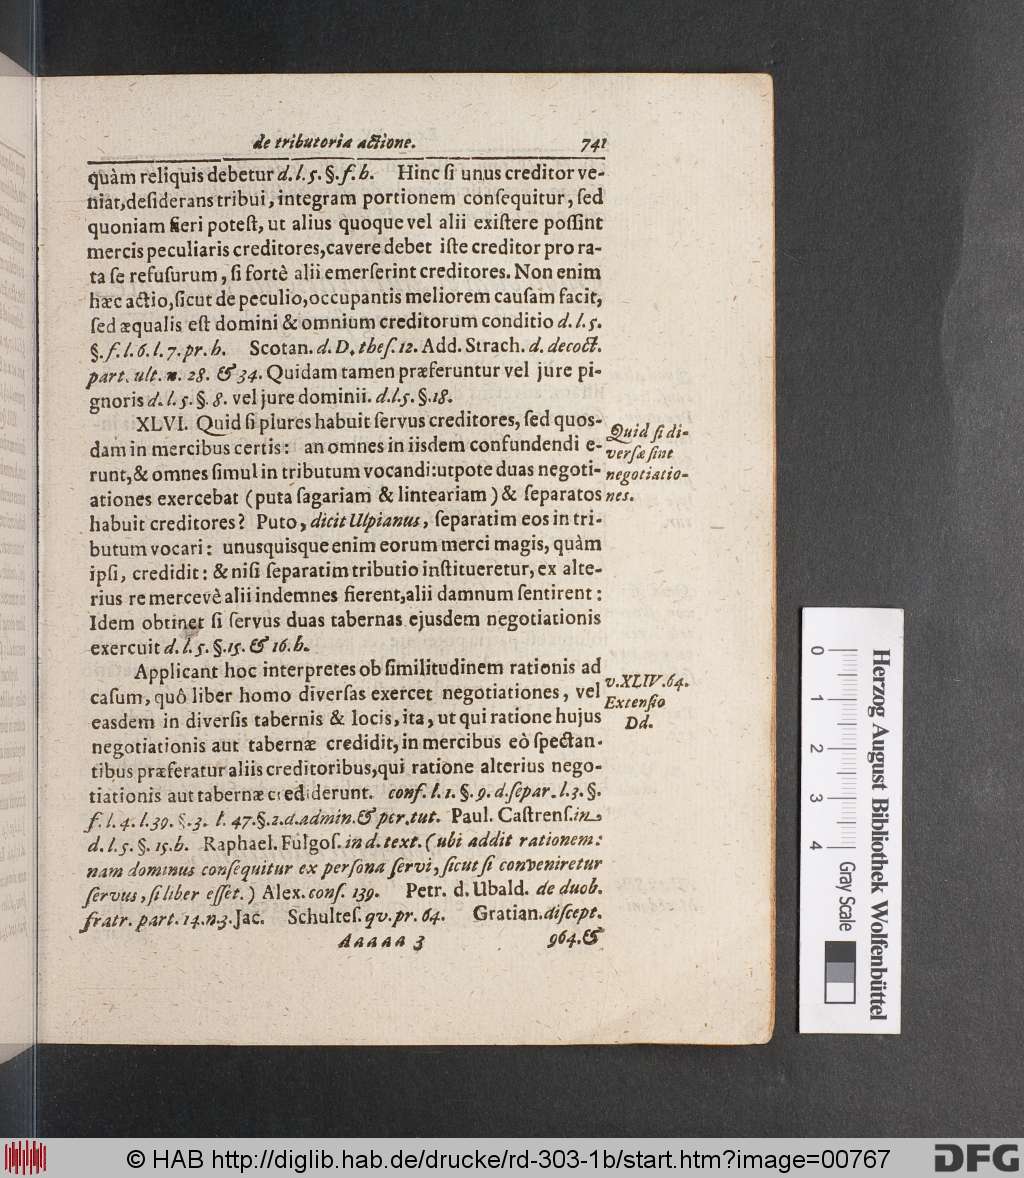 de tributoria actione. 741
quàm reliquis debetur d. l. 5. §. f. h. Hinc ſi unus creditor ve-
niat, deſiderans tribui, integram portionem conſequitur, ſed
quoniam fieri poteſt, ut alius quoque vel alii exiſtere poſſint
mercis peculiaris creditores, cavere debet iſte creditor pro ra-
ta ſe refuſurum, ſi fortè alii emerſerint creditores. Non enim
hæc actio, ſicut de peculio, occupantis meliorem cauſam facit,
ſed æqualis eſt domini & omnium creditorum conditio d. l. 5.
§. f. l. 6. l. 7. pr. h. Scotan. d. D. theſ. 12. Add. Strach. d. decoct.
part. ult. n. 28. & 34. Quidam tamen præferuntur vel jure pi-
gnoris d. l. 5. §. 8. vel jure dominii. d. l. 5. §. 18.
XLVI. Quid ſi plures habuit ſervus creditores, ſed quos-
dam in mercibus certis: an omnes in iisdem confundendi e-
runt, & omnes ſimul in tributum vocandi: utpote duas negoti-
ationes exercebat (puta ſagariam & linteariam) & ſeparatos
habuit creditores? Puto, dicit Ulpianus, ſeparatim eos in tri-
butum vocari: unusquisque enim eorum merci magis, quàm
ipſi, credidit: & niſi ſeparatim tributio inſtitueretur, ex alte-
rius re mercevè alii indemnes fierent, alii damnum ſentirent:
Idem obtinet ſi ſervus duas tabernas ejusdem negotiationis
exercuit d. l. 5. §. 15. & 16. h.
Quid ſi di-
verſæ ſint
negotiatio-
nes.
Applicant hoc interpretes ob ſimilitudinem rationis ad
caſum, quô liber homo diverſas exercet negotiationes, vel
easdem in diverſis tabernis & locis, ita, ut qui ratione hujus
negotiationis aut tabernæ credidit, in mercibus eò ſpectan-
tibus præferatur aliis creditoribus, qui ratione alterius nego-
tiationis aut tabernæ crediderunt. conf. l. 1. §. 9. d. ſepar. l. 3. §.
f. l. 4. l. 39. §. 3. l. 47. §. 2. d. admin. & per. tut. Paul. Caſtrenſ. in
d. l. 5. §. 15. h. Raphael. Fulgoſ. in d. text. (ubi addit rationem:
nam dominus conſequitur ex perſona ſervi, ſicut ſi conveniretur
ſervus, ſi liber eſſet.) Alex. conſ. 139. Petr. d. Ubald. de duob.
fratr. part. 14. n. 3. Jac. Schulteſ. qv. pr. 64. Gratian. diſcept.
v. XLIV. 64.
Extenſio
Dd.
Aaaaa 3 964. &
0 1 2 3 4
Gray Scale
Herzog August Bibliothek Wolfenbüttel
© HAB http://diglib.hab.de/drucke/rd-303-1b/start.htm?image=00767
DFG